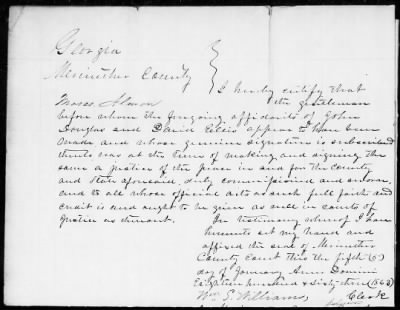 Georgia
Meriwether County
I hereby certify that
Moses
the gentleman
before whom the foregoing affidavits of John
Douglas and David appear to have been
made and whose genuine signature is subscribed
thereto was at the time of making and signing the
same a Justice of the peace in and for the County
and State aforesaid, duly commissioned and sworn,
and to all whose official acts as such full faith and
credit is and ought to be given as well in courts of
Justice as thereout.
In testimony whereof I have
hereunto set my hand and
affixed the seal of Meriwether
County Court this the fifth (5)
day of January Anno Domini
Eighteen hundred & sixty three (1863)
Wm S. Williams, Clerk